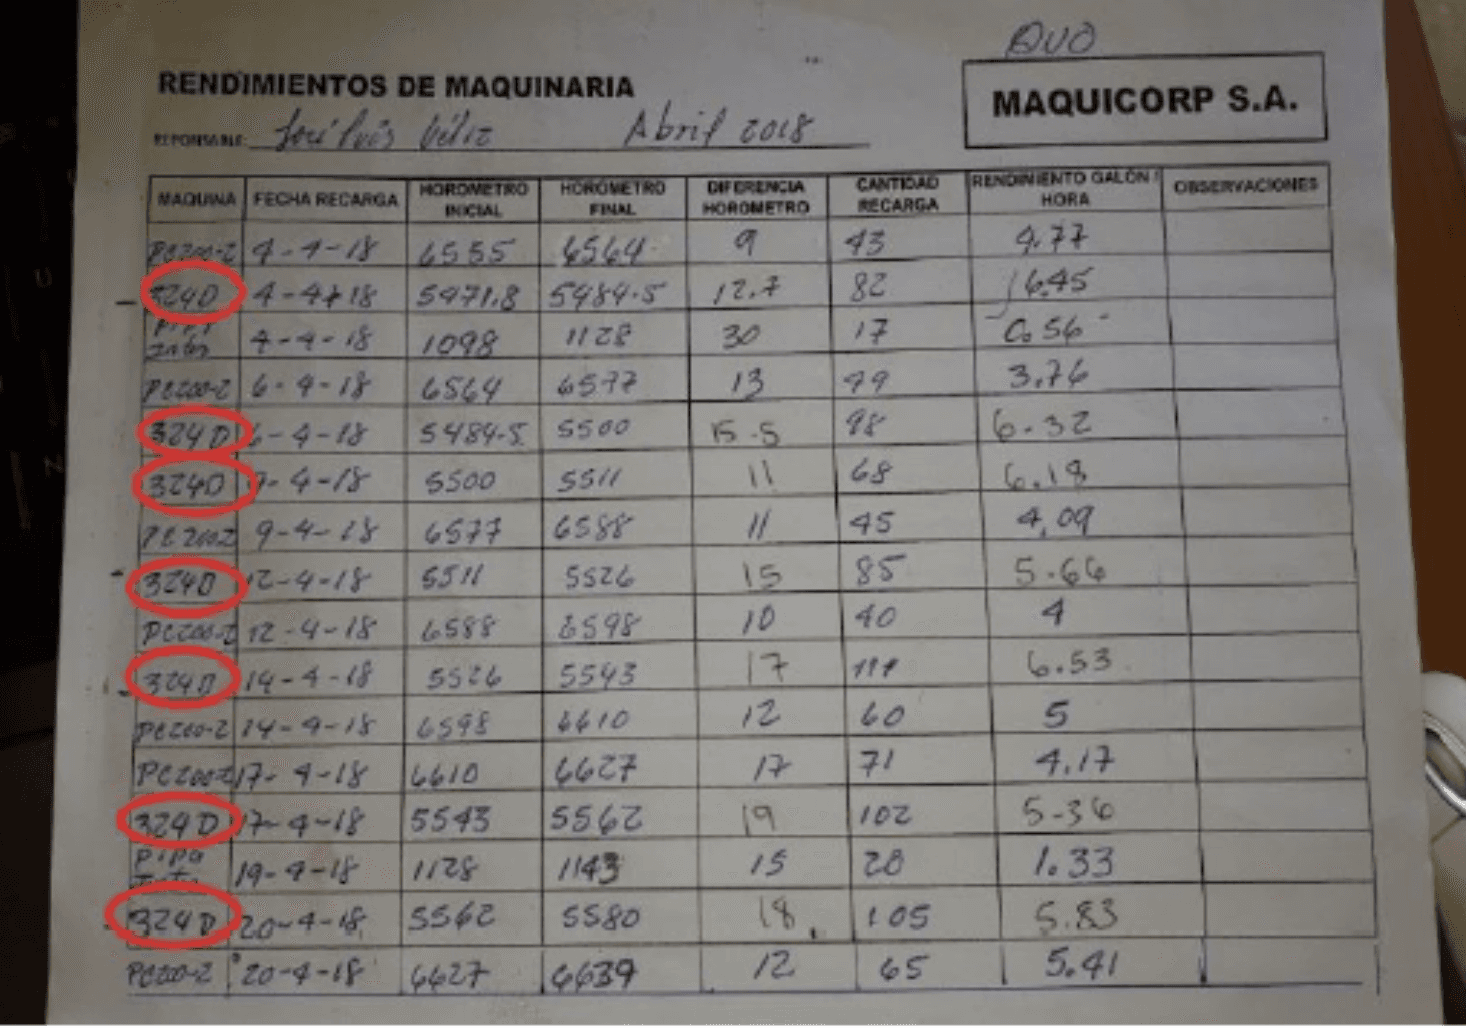 QUO
RENDIMIENTOS DE MAQUINARIA
MAQUICORP S.A.
REPONSABLE: José Luis Véliz Abril 2018
MAQUINA FECHA RECARGA HOROMETRO INICIAL HOROMETRO FINAL DIFERENCIA HOROMETRO CANTIDAD RECARGA RENDIMIENTO GALÓN / HORA OBSERVACIONES
PC200-2 4-4-18 6555 6564 9 43 4.77
324D 4-4-18 5471.8 5484.5 12.7 82 6.45
Pipa 4-4-18 1098 1128 30 17 0.56
PC200-2 6-4-18 6564 6577 13 49 3.76
324D 6-4-18 5484.5 5500 15.5 98 6.32
324D 9-4-18 5500 5511 11 68 6.18
PC2002 9-4-18 6577 6588 11 45 4.09
324D 12-4-18 5511 5526 15 85 5.66
PC200-2 12-4-18 6588 6598 10 40 4
324D 14-4-18 5526 5543 17 111 6.53
PC200-2 14-4-18 6598 6610 12 60 5
PC200-2 17-4-18 6610 6627 17 71 4.17
324D 17-4-18 5543 5562 19 102 5.36
Pipa 19-4-18 1128 1143 15 20 1.33
324D 20-4-18 5562 5580 18 105 5.83
PC200-2 20-4-18 6627 6639 12 65 5.41